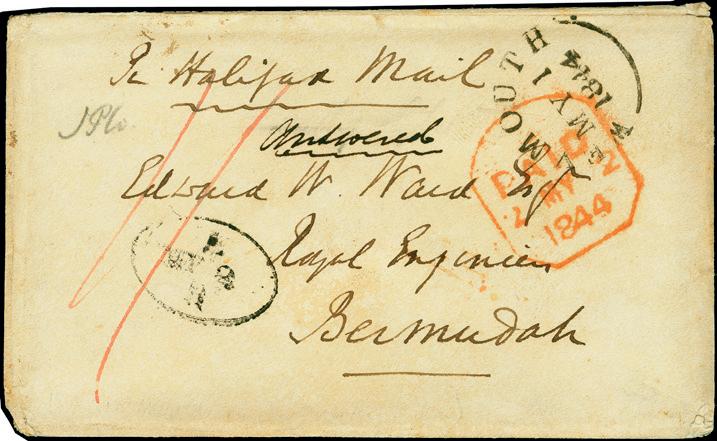 Pr Halifax Mail
Answered
Edward W. Ward Esq
Royal Engineers
Bermudah
MOUTH
MY 1
1844
PAID
2 MY 2
1844